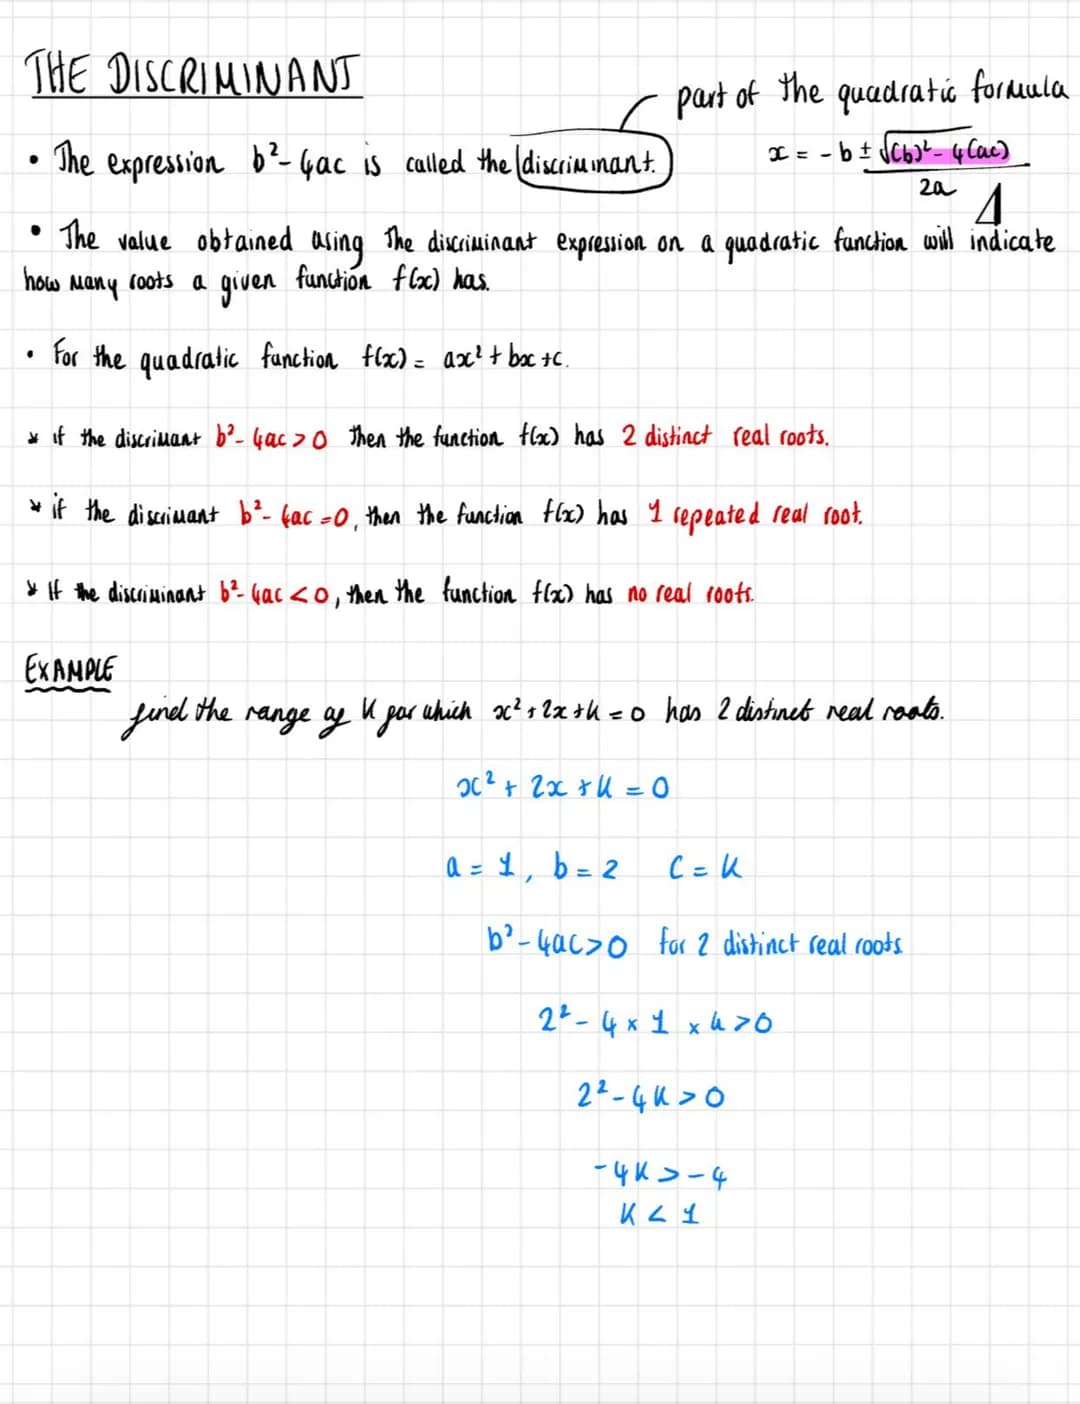 THE DISCRIMINANT
part of the quadratic formula
• The expression b²-4ac is called the discriminant.
x = -b ± √(b)² - 4(ac)
2a
Δ
• The value obtained using the discriminant expression on a quadratic function will indicate
how many roots a given function f(x) has.
• For the quadratic function f(x) = ax² + bx +c.
* if the discrimant b²-4ac > 0 then the function f(x) has 2 distinct real roots.
* if the discrimant b²-4ac =0, then the function f(x) has 1 repeated real root.
* If the discriminant b²-4ac <0, then the function f(x) has no real roots.
EXAMPLE
find the range of k for which x²+2x+k=0 has 2 distinct real roots.
x² + 2x + k = 0
a = 1, b = 2 C = k
b²-4ac>0 for 2 distinct real roots
2² - 4 × 1 × k >0
2² - 4k > 0
-4k > -4
k < 1